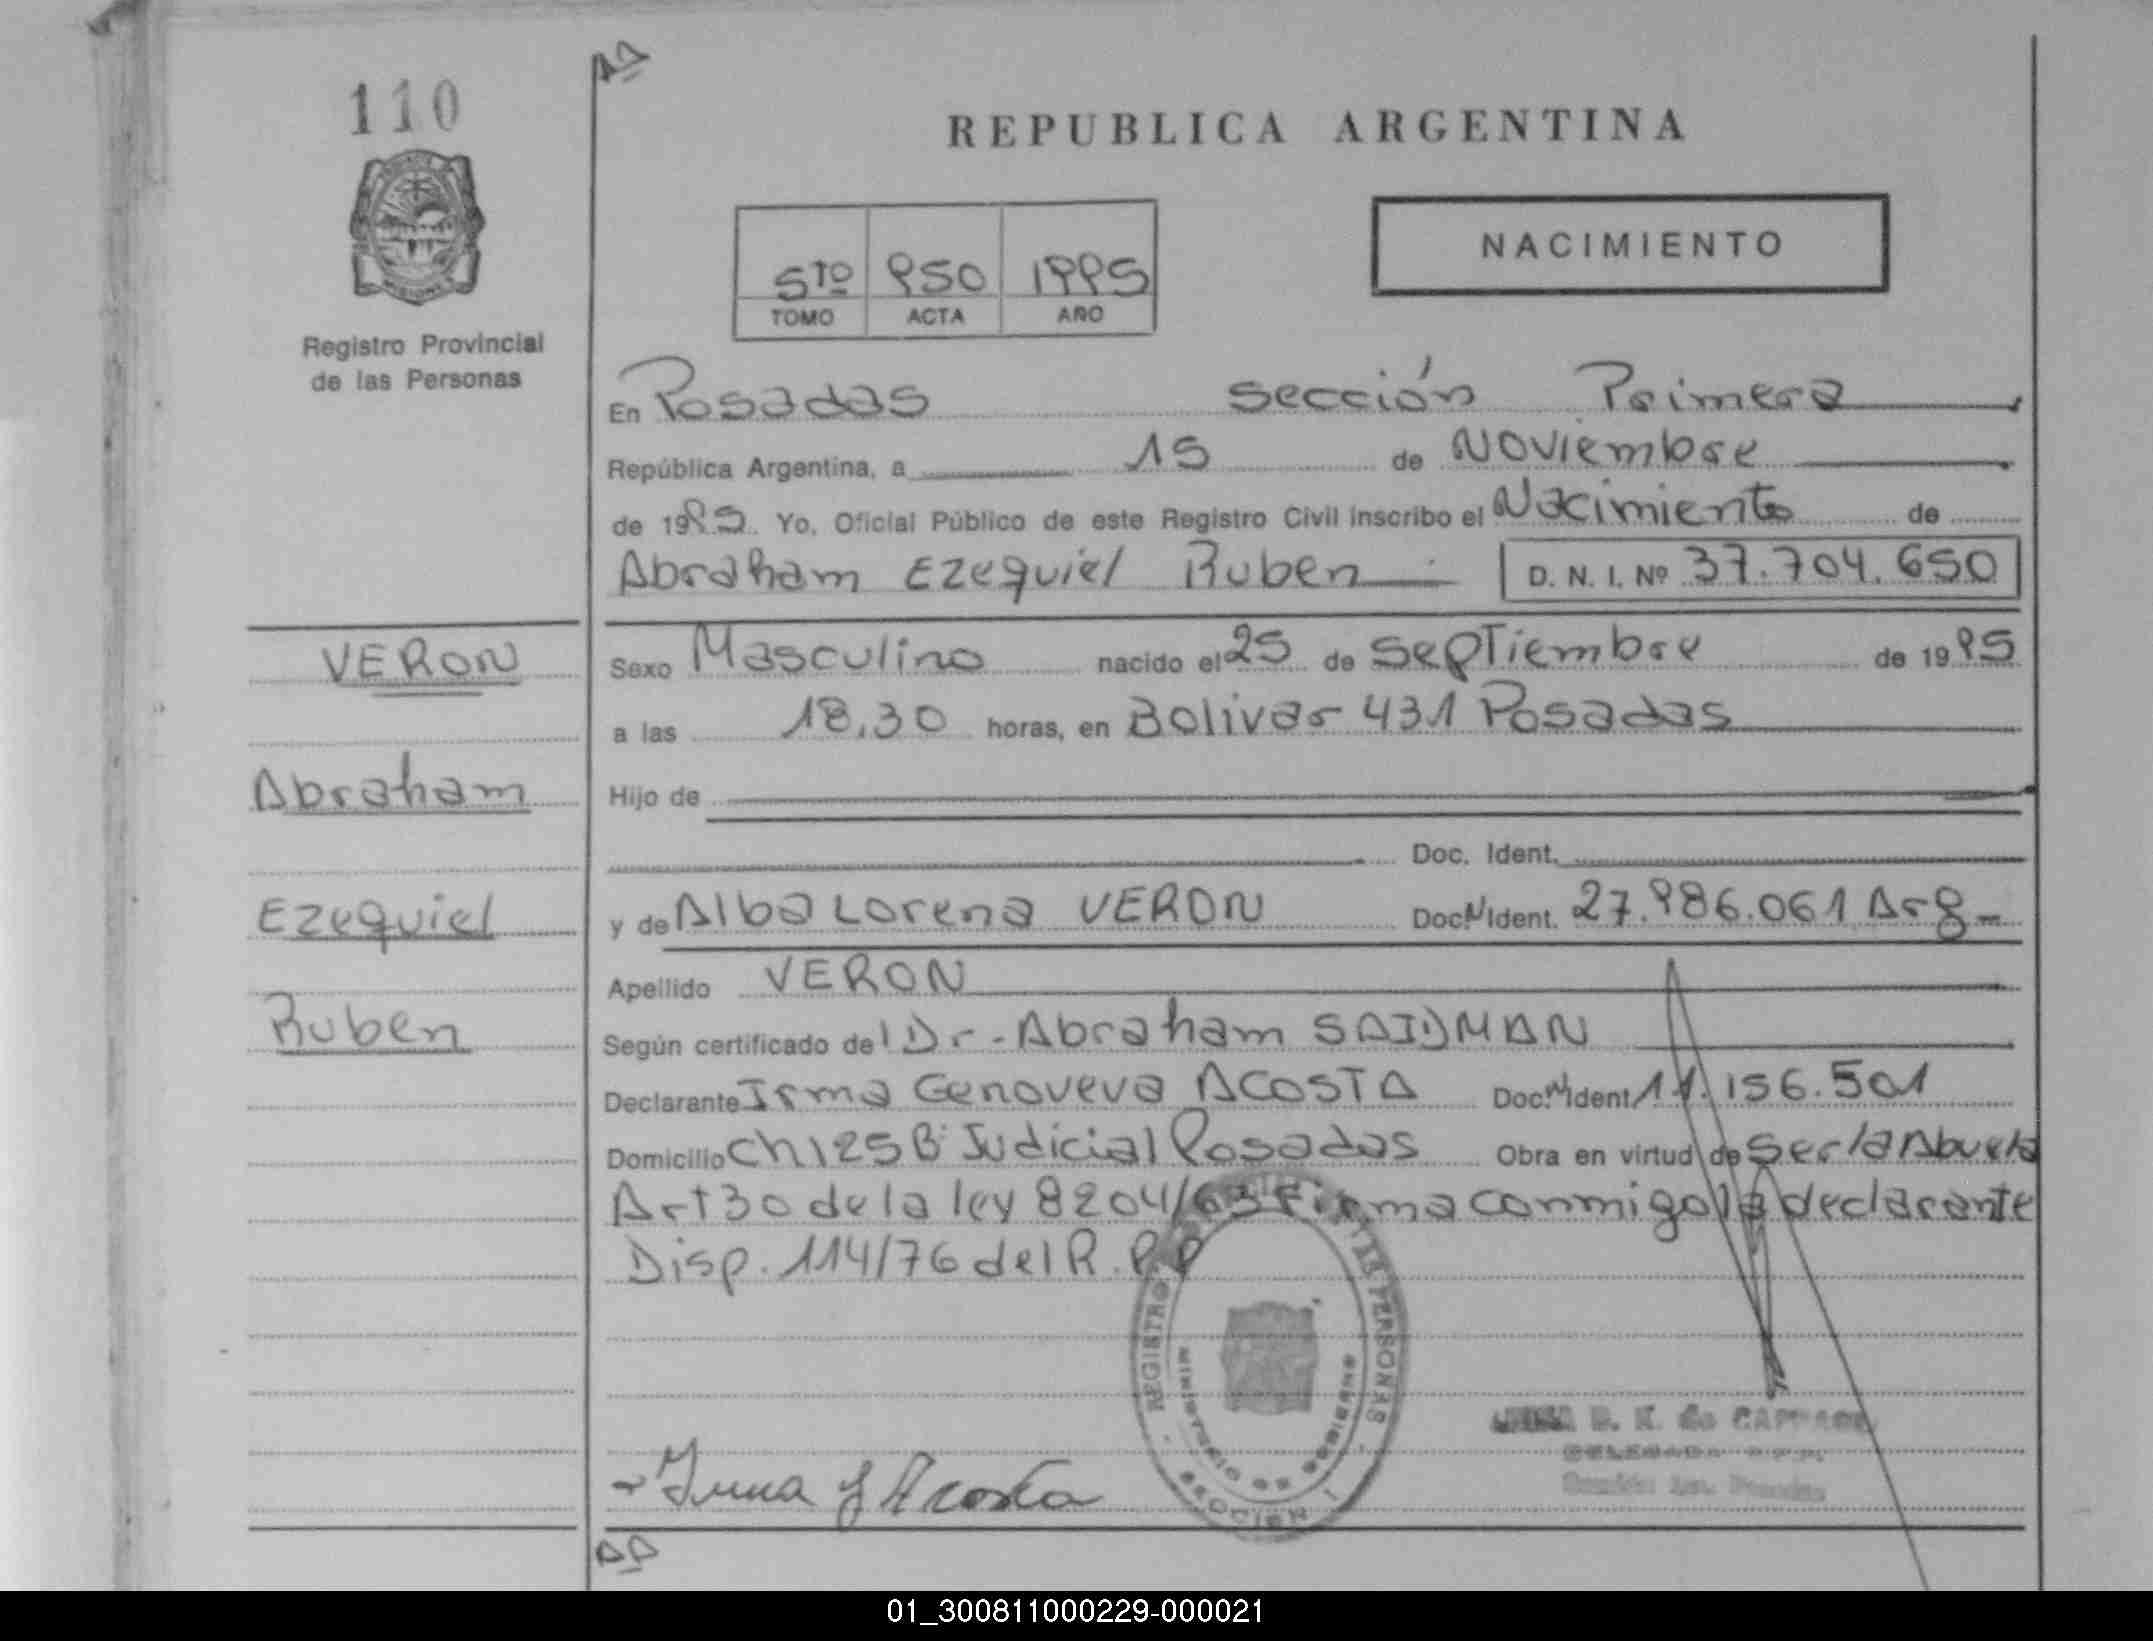 110
REPUBLICA ARGENTINA
NACIMIENTO
5to 950 1995
TOMO ACTA AÑO
Registro Provincial
de las Personas
En Posadas sección Primera
República Argentina, a 15 de Noviembre
de 1995. Yo, Oficial Público de este Registro Civil inscribo el Nacimiento de
Abraham Ezequiel Ruben D. N. I. Nº 37.704.650
VERON
Sexo Masculino nacido el 25 de Septiembre de 1995
a las 18,30 horas, en Bolivar 431 Posadas
Abraham
Hijo de
Doc. Ident.
Ezequiel
y de Alba Lorena VERON Doc. N Ident. 27.986.061 Arg
Apellido VERON
Ruben
Según certificado del Dr. Abraham SAIDMAN
Declarante Irma Genoveva ACOSTA Doc. N Ident. 11.156.501
Domicilio Ch 125 Bº Judicial Posadas Obra en virtud de ser la Abuela
Art 30 de la ley 8204/63 Firma conmigo la declarante
Disp. 114/76 del R.P.P
REGISTRO PERSONAS
MINISTERIO DE GOBIERNO
SECCION 1
D. K. de
Irma G Acosta
01_300811000229-000021